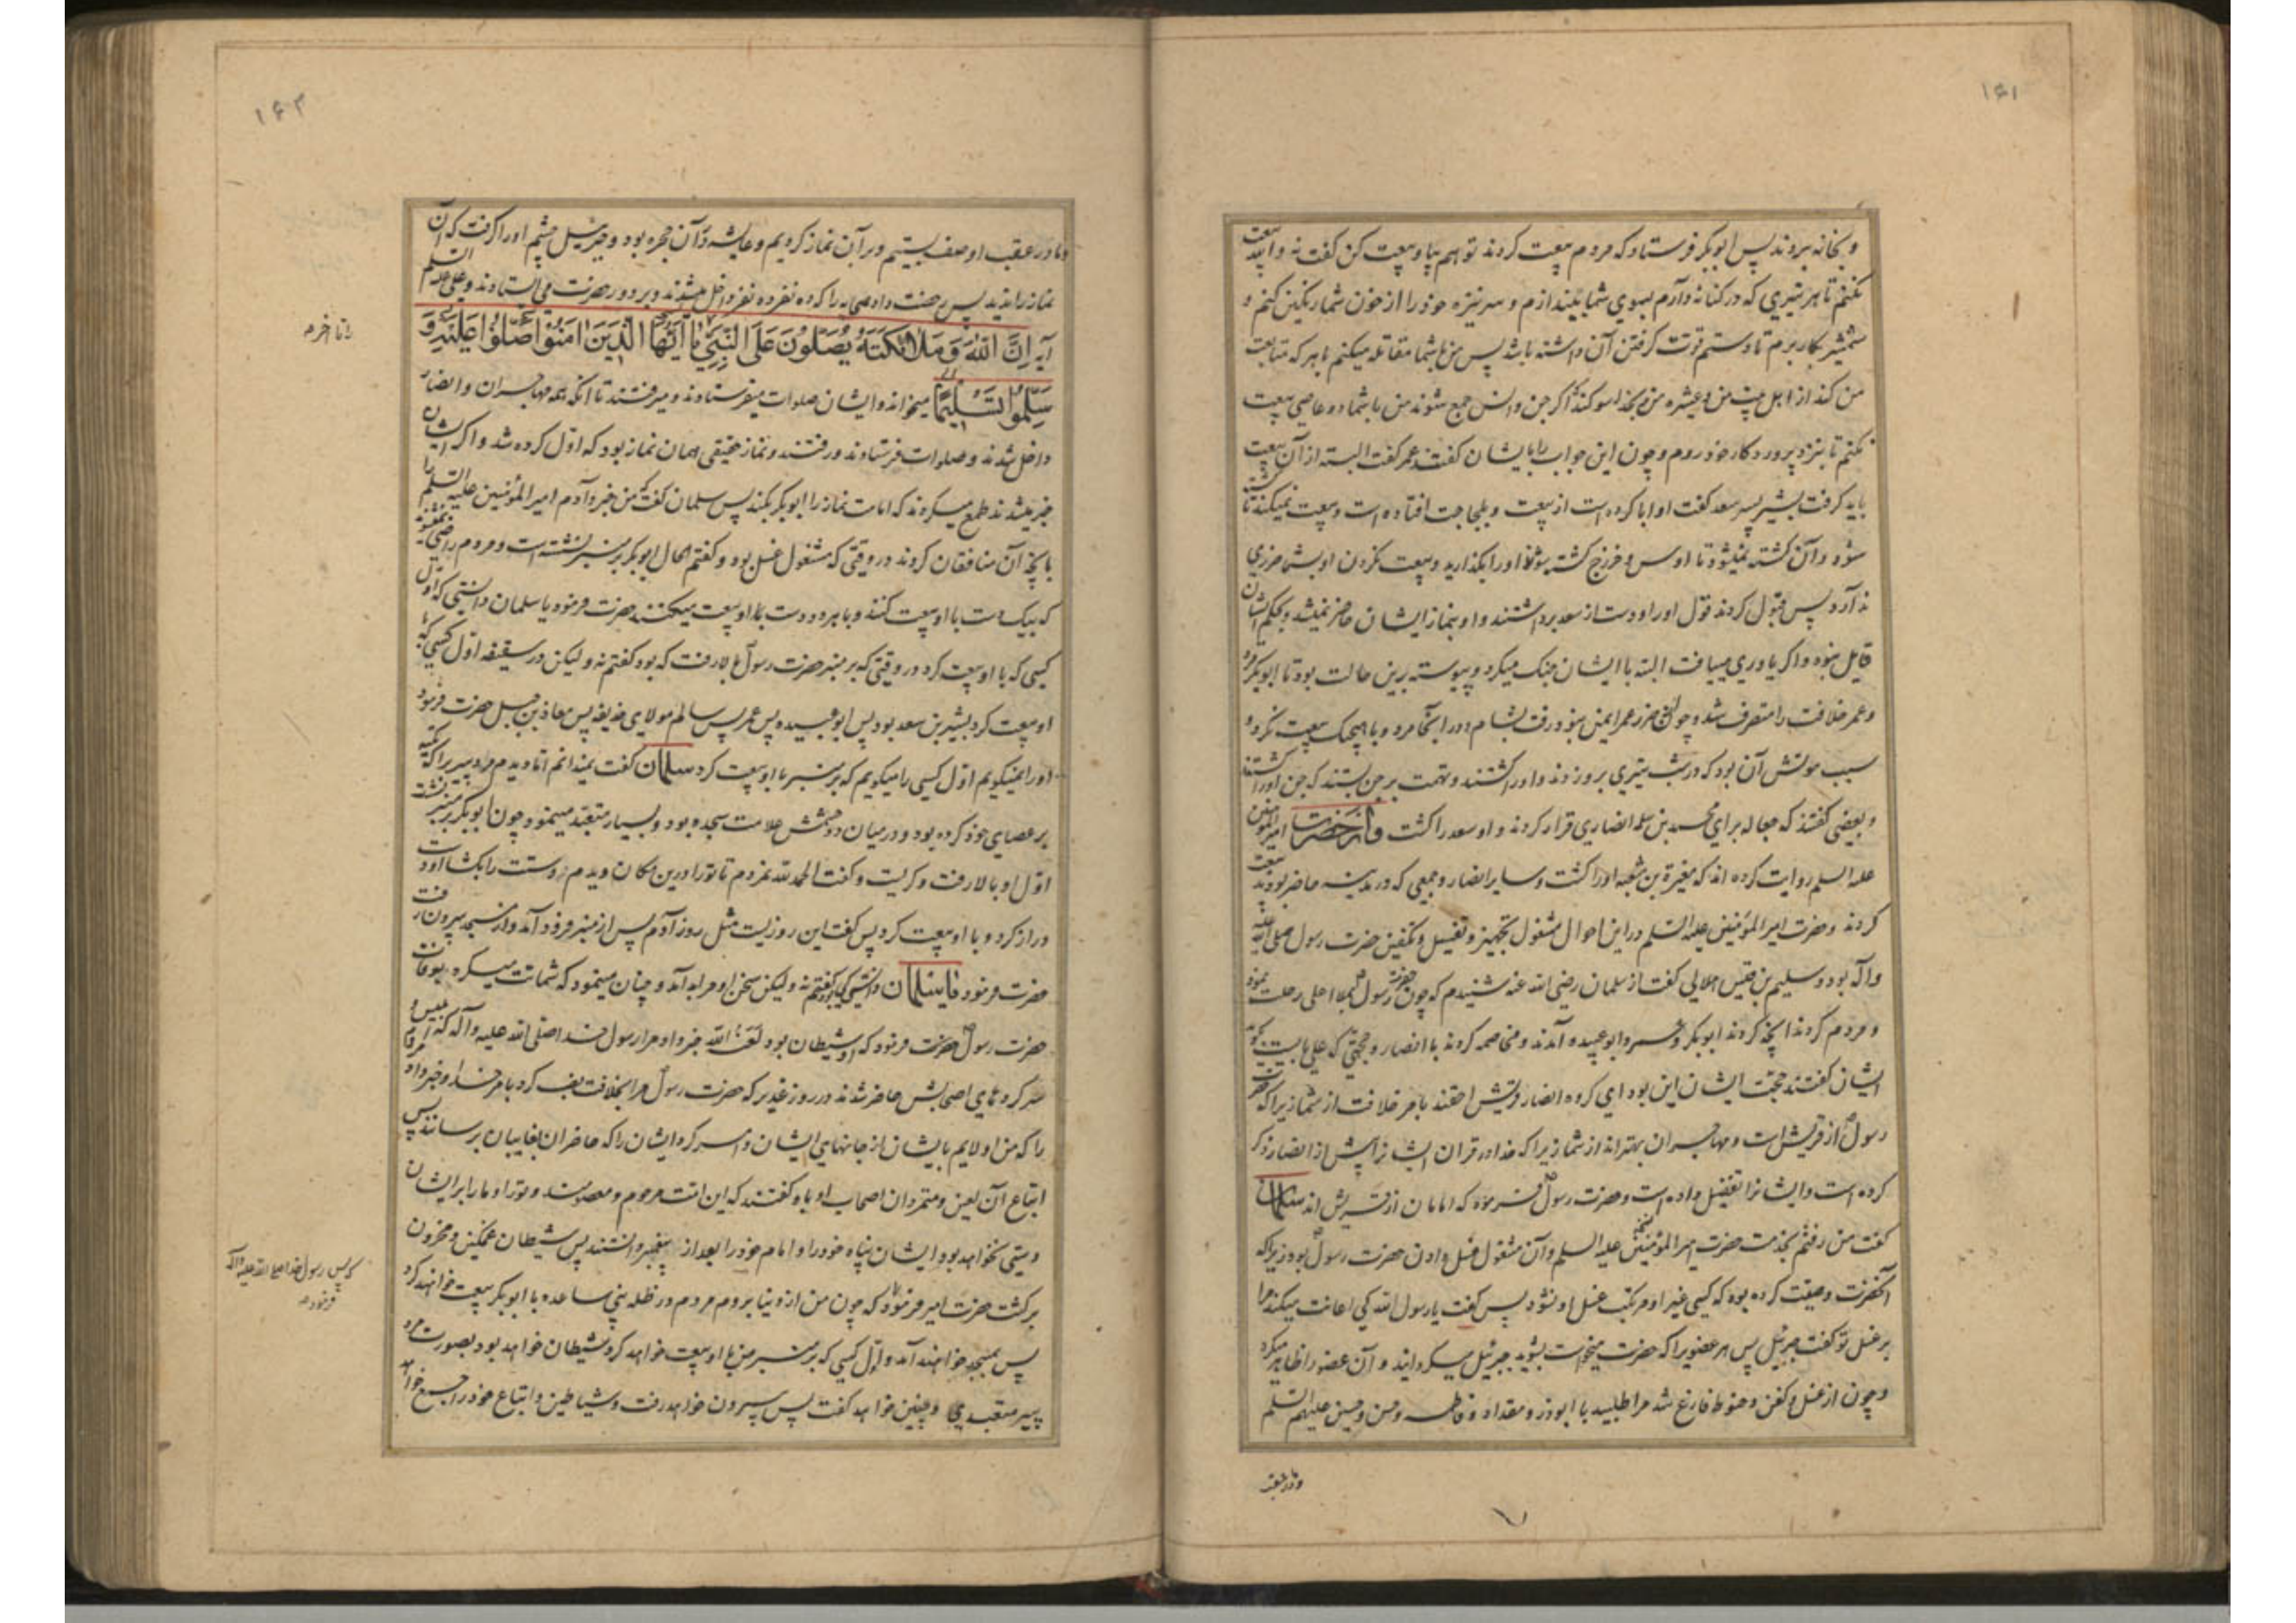 ۱۶۱
و بخانه بروند پس ابوبکر فرستاد که مردم بیعت کردند تو هم بیا و بیعت کن گفت نه والله بیعت
نکنم تا هر تیری که در کنانه دارم بسوی شما بیندازم و سر نیزه خود را از خون شما رنگین کنم و
شمشیر بکار برم تا دستم قوت گرفتن آن داشته باشد پس من با شما مقاتله میکنم با هر که متابعت
من کند از اهل بیت من و عشیره من و بخدا سوگند اگر جن و انس جمع شوند من با شما دو عاصی بیعت
نکنم تا بنزد پروردگار خود روم و چون این جواب را بایشان گفتند عمر گفت البته از آن بیعت
باید گرفت بشیر پسر سعد گفت او ابا کرده است از بیعت و بلجاجت افتاده است و بیعت نمیکند تا کشته
شود و آن کشته نمیشود تا اوس و خزرج کشته شوند او را بگذارید و بیعت نکردن او بشما ضرری
ندارد پس قبول کردند قول او را و دست از سعد برداشتند و او بنماز ایشان حاضر نمیشد و بحکم ایشان
قایل نبود و اگر یاوری مییافت البته با ایشان جنک میکرد و پیوسته برین حالت بود تا ابوبکر مرد
و عمر خلافت را متصرف شد و چون از ضرر عمر ایمن نبود رفت بشام و در آنجا مرد و با هیچیک بیعت نکرد و
سبب موتش آن بود که در شب تیری برو زدند و او را کشتند و تهمت بر جن بستند که جن او را کشتند
و بعضی گفتند که جعاله برای محمد بن سلمه انصاری قرار کردند و او سعد را کشت و از حضرت امیرالمؤمنین
علیه السلم روایت کرده اند که مغیرة بن شعبه او را کشت و سایر انصار و جمعی که در مدینه حاضر بودند بیعت
کردند و حضرت امیرالمؤمنین علیه السلم در این احوال مشغول تجهیز و تغسیل و تکفین حضرت رسول صلی الله علیه
و آله بود و سلیم بن قیس هلالی گفت از سلمان رضی الله عنه شنیدم که چون حضرت رسول بملاء اعلی رحلت نمود
و مردم کردند آنچه کردند ابوبکر و عمر و ابوعبیده آمدند و مخاصمه کردند با انصار و حجتی که علی بایست بگوید
ایشان گفتند حجت ایشان این بود ای گروه انصار قریش احقند بامر خلافت از شما زیرا که حضرت
رسول از قریش است و مهاجران بهتراند از شما زیرا که خدا در قران ایشانرا پیش از انصار ذکر
کرده است و ایشانرا تفضیل داده است و حضرت رسول فرموده که امامان از قریش اند سلمان
گفت من رفتم بخدمت حضرت امیرالمؤمنین علیه السلم و آن مشغول غسل دادن حضرت رسول بود زیرا که
آنحضرت وصیت کرده بود که کسی غیر او مرتکب غسل او نشود پس گفت یا رسول الله کی اعانت میکند مرا
بر غسل تو گفت جبرئیل پس هر عضویرا که حضرت میخواست بشوید جبرئیل میگردانید و آن عضو را ظاهر میکرد
و چون از غسل و کفن و حنوط فارغ شد مرا طلبید با ابوذر و مقداد و فاطمه و حسن و حسین علیهم السلم
و ما در عقب
۱۶۲
و ما در عقب او صف بستیم و بر آن نماز کردیم و عایشه در آن حجره بود و جبرئیل چشم او را گرفت که آن
نماز را ندید پس رخصت داد صحابه را که ده نفر ده نفر داخل میشدند و بر دور حضرت می ایستادند و علی علیه السلم
آیه اِنَّ اللّٰهَ وَ مَلَائِكَتَهُ يُصَلُّونَ عَلَى النَّبِيِّ يَا اَيُّهَا الَّذِينَ اٰمَنُوا صَلُّوا عَلَيْهِ وَ
سَلِّمُوا تَسْلِيمًا میخواند و ایشان صلوات میفرستادند و میرفتند تا آنکه همه مهاجران و انصار
داخل شدند و صلوات فرستادند و رفتند و نماز حقیقی همان نماز بود که اول کرده شد و اگر ایشان
خبر میشدند طمع میکردند که امامت نماز را ابوبکر بکند پس سلمان گفت که من خبر دادم امیرالمؤمنین علیه السلم را
بآنچه آن منافقان کردند در وقتی که مشغول غسل بود و گفتم الحال ابوبکر بر منبر نشسته است و مردم راضی نمیشوند
که بیک دست با او بیعت کنند و با هر دو دست با او بیعت میکنند حضرت فرمود یا سلمان دانستی که اول
کسی که با او بیعت کرد در وقتی که بر منبر حضرت رسول بالا رفت که بود گفتم نه و لیکن در سقیفه اول کسی که با
او بیعت کرد بشیر بن سعد بود پس ابوعبیده پس عمر پس سالم مولای حذیفه پس معاذ بن جبل حضرت فرمود
او را نمیگویم اول کسی را میگویم که بر منبر با او بیعت کرد سلمان گفت نمیدانم اما دیدم مرد پیر را که تکیه
بر عصای خود کرده بود و در میان دو چشمش علامت سجده بود و بسیار متعبد مینمود چون ابوبکر بر منبر نشست
اول او بالا رفت و گریست و گفت الحمد لله نمردم تا تو را درین مکان دیدم دستت را بکشا او دست
دراز کرد و با او بیعت کرد پس گفت این روزیست مثل روز آدم پس از منبر فرود آمد و از مسجد بیرون رفت
حضرت فرمود یا سلمان دانستی که بود گفتم نه و لیکن سخن او مرا بد آمد و چنان مینمود که شماتت میکرد بوفات
حضرت رسول حضرت فرمود که او شیطان بود لعنه الله خبر داد مرا رسول خدا صلی الله علیه و آله که ابلیس و
سرکرده های اصحابش حاضر شدند در روز غدیر که حضرت رسول مرا بخلافت نصب کرد بامر خدا و خبر داد مردم
را که من اولایم بایشان از جانهای ایشان و امر کرد ایشان را که حاضران بغایبان برسانند پس
اتباع آن لعین و متمردان اصحاب او باو گفتند که این امت مرحوم و معصومند و تو را و ما را بر ایشان
دستی نخواهد بود ایشان پناه خود را و امام خود را بعد از پیغمبر دانستند پس شیطان غمگین و محزون
برگشت حضرت امیر فرمود که چون من از دنیا بروم مردم در ظله بنی ساعده با ابوبکر بیعت خواهند کرد
پس بمسجد خواهند آمد و اول کسی که بر منبر من با او بیعت خواهد کرد شیطان خواهد بود بصورت مرد
پیر متعبدی و چنین خواهد گفت پس بیرون خواهد رفت و شیاطین و اتباع خود را جمع خواهد
که پس رسول خدا صلی الله علیه و آله
فرمود